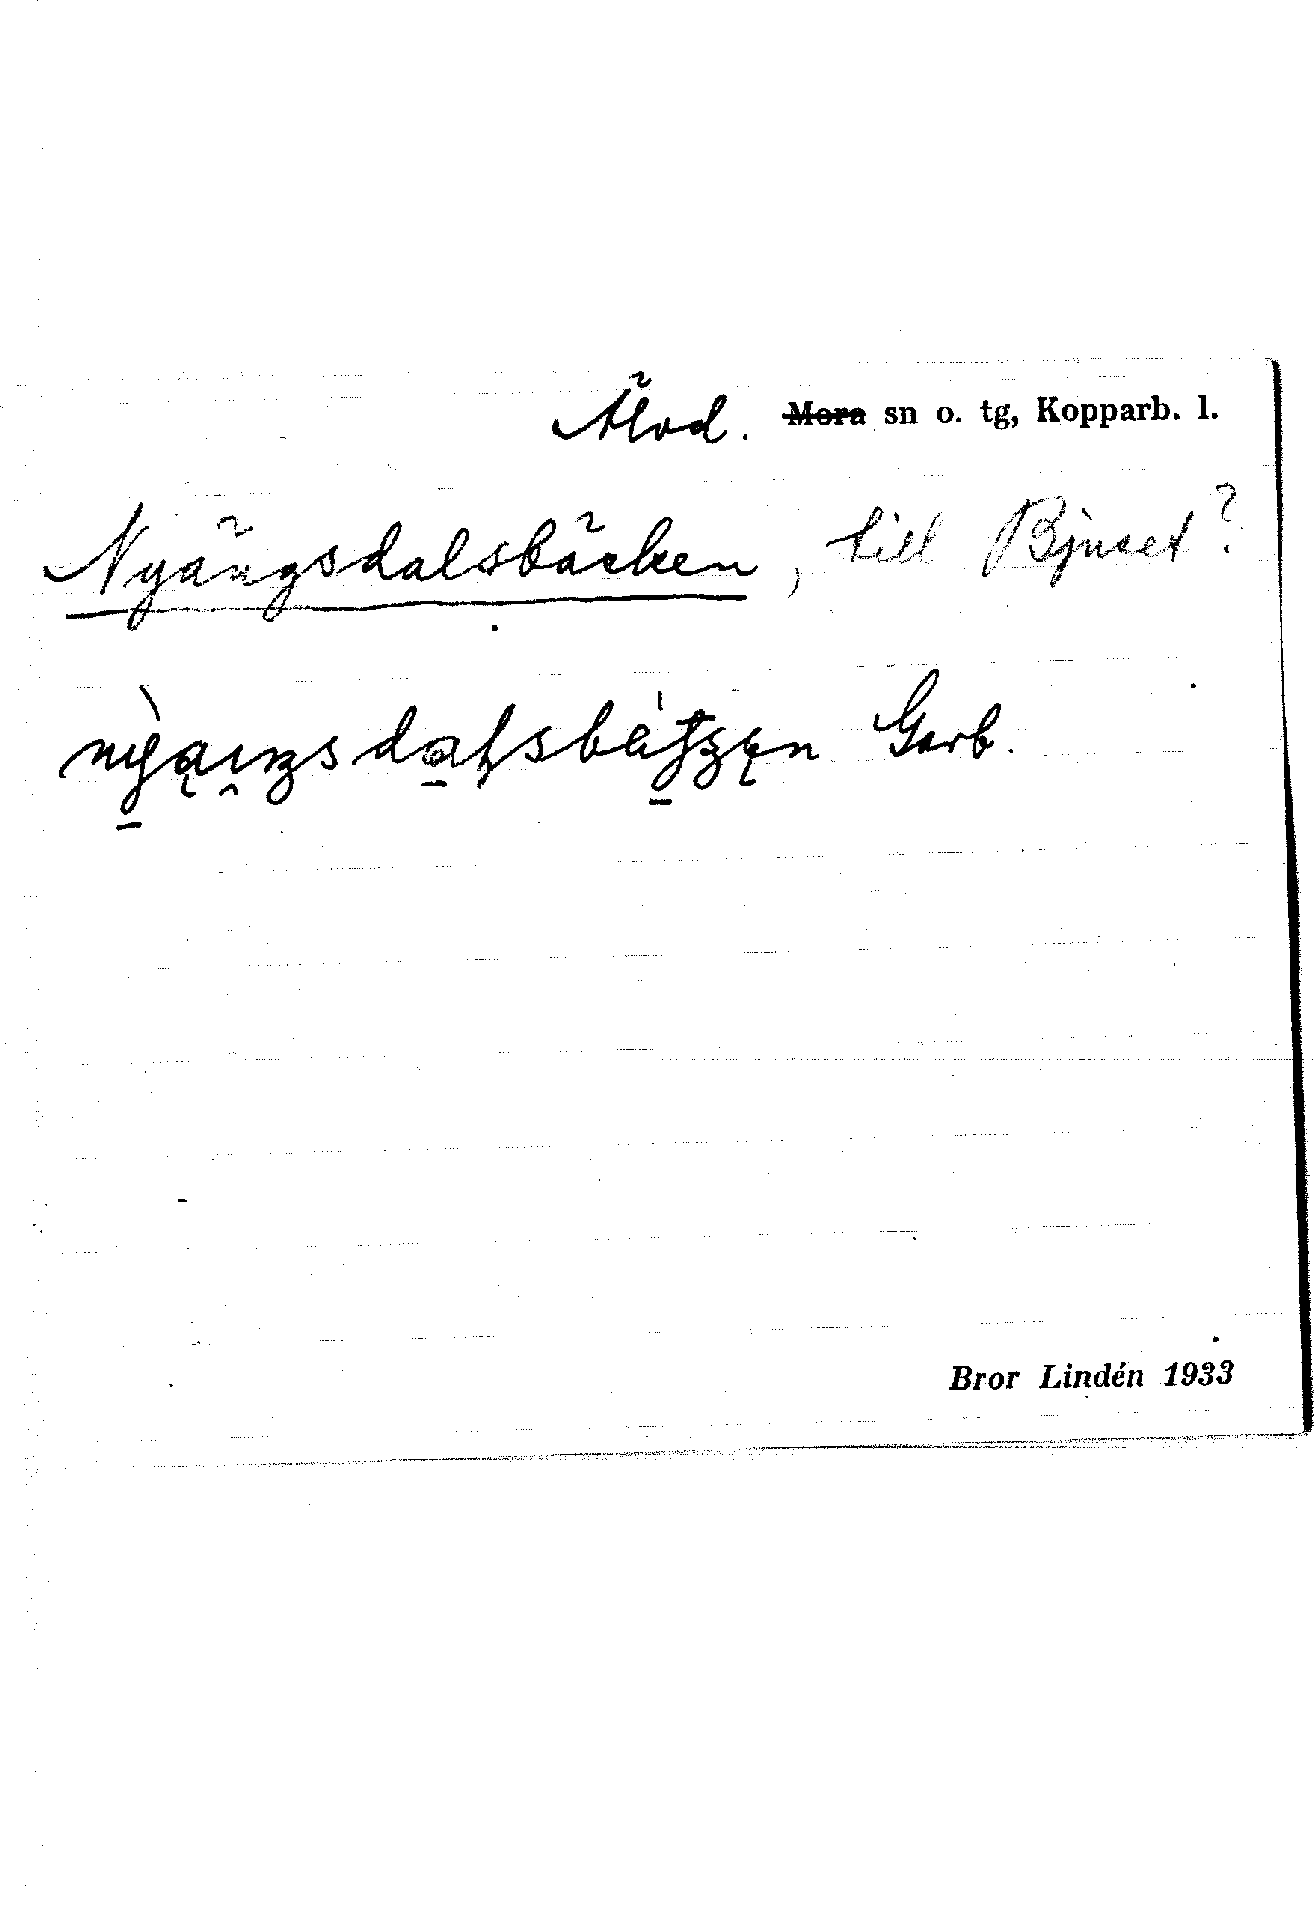 Älvd. Mora sn o. tg, Kopparb. l.
Nyängsdalsbäcken, till Bjuset?
Garb.
Bror Lindén 1933